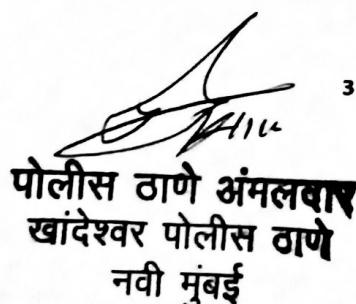 3
पोलीस ठाणे अंमलदार
खांदेश्वर पोलीस ठाणे
नवी मुंबई